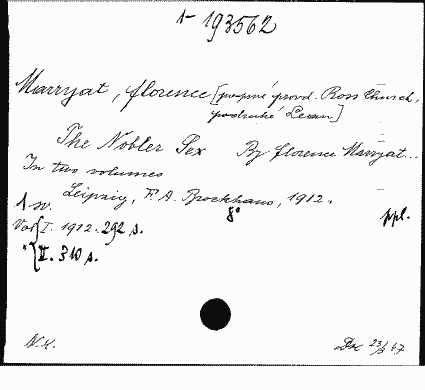 1- 193562
Marryat, Florence [poprvé provd. Ross Church,
podruhé Lean]
The Nobler Sex By Florence Marryat...
In two volumes
Leipzig, F. A. Brockhaus, 1912.
1 sv. 8° ppl.
Vol I. 1912. 292 s.
" II. 310 s.
N.K.
Dar 23/5 47